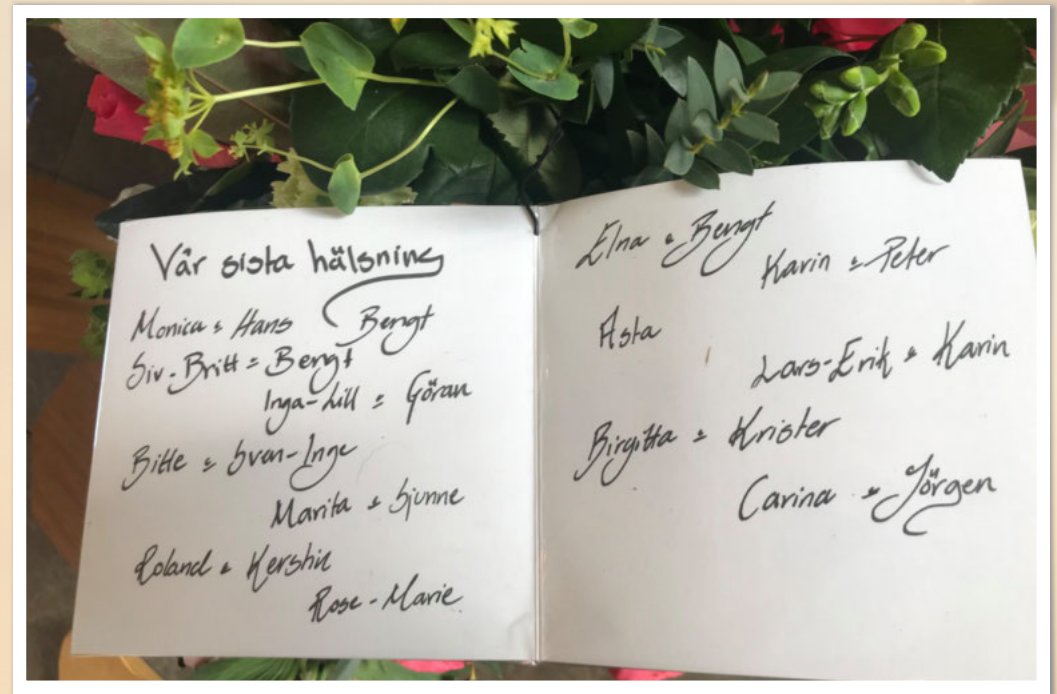 Vår sista hälsning
Monica & Hans Bengt
Siv-Britt & Bengt
Inga-Lill & Göran
Bitte & Sven-Inge
Marita & Sjunne
Roland & Kerstin
Rose-Marie
Elna & Bengt
Karin & Peter
Asta
Lars-Erik & Karin
Birgitta & Krister
Carina & Jörgen